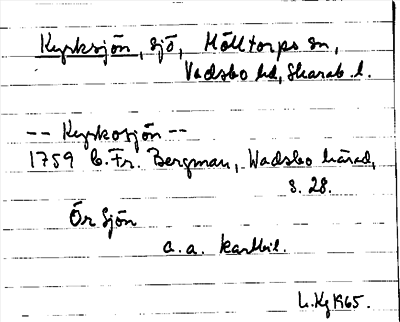 Kyrksjön, sjö, Mölltorps sn,
Vadsbo hd, Skarab. l.
-- Kyrkosjön --
1759 C. Fr. Bergman, Wadsbo härad,
s. 28.
Ör Sjön
a. a. kartbil.
L. Kg 1965.